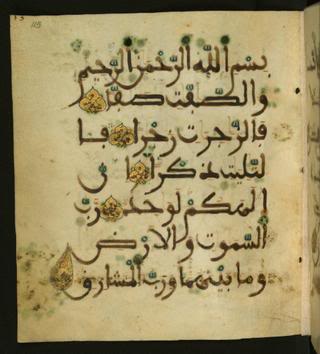 بسم الله الرحمن الرحيم
والصفت صفا
فالزجرت زجرا فا
لتليت ذكرا ان
الهكم لوحد رب
السموت والارض
وما بينهما ورب المشارق